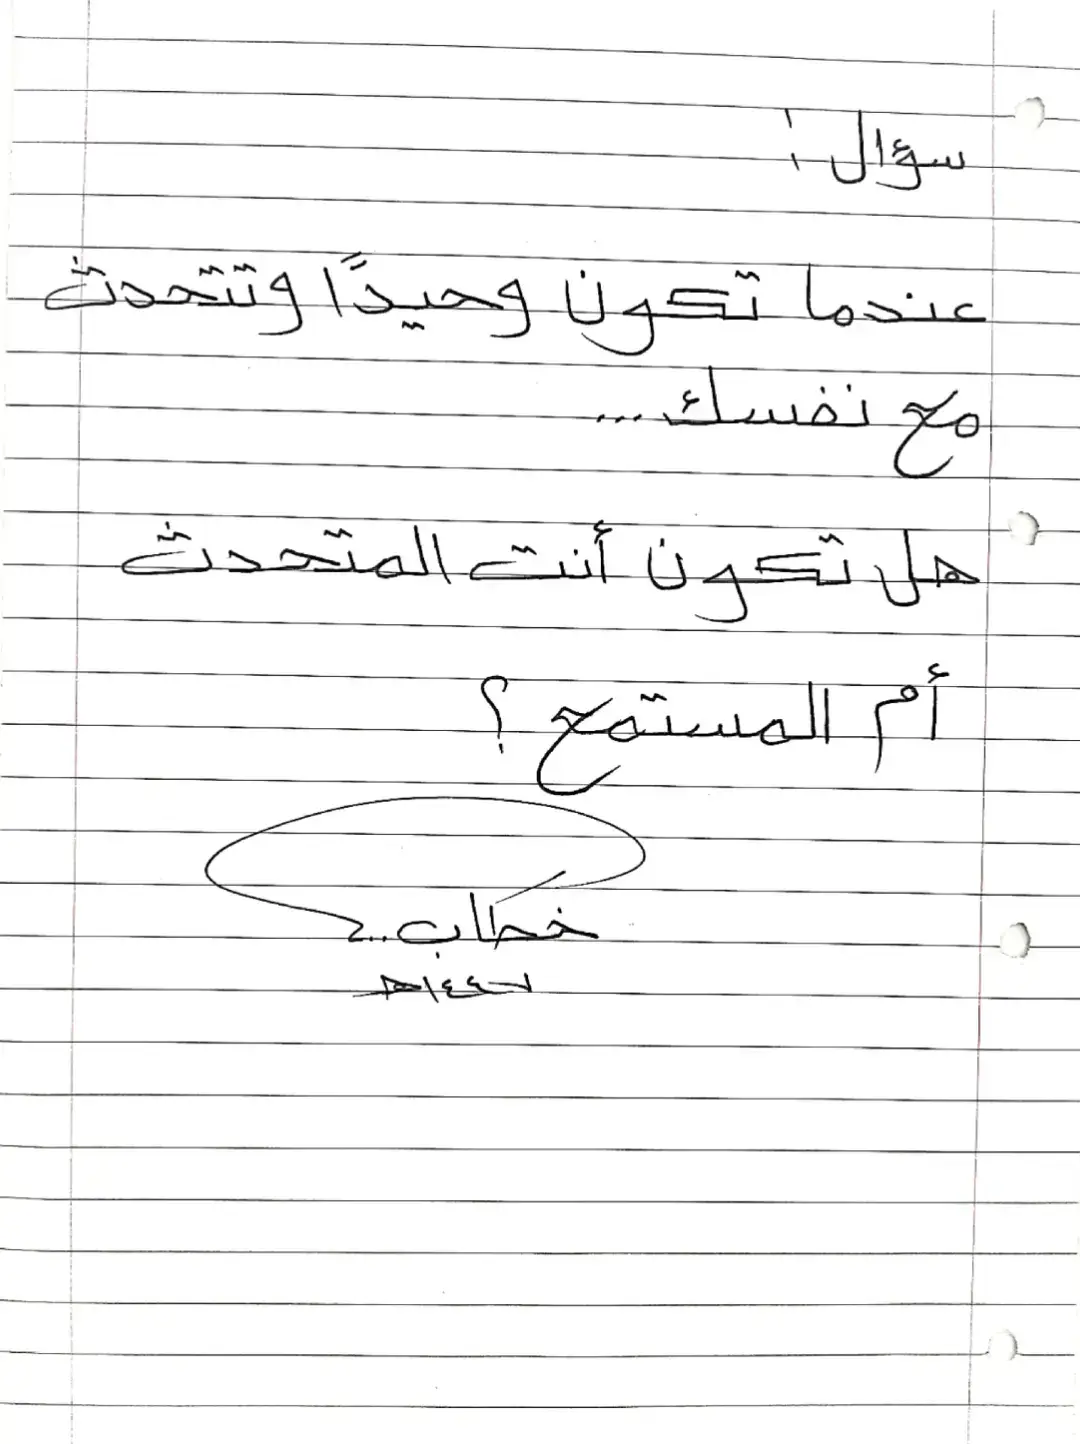 سؤال !
عندما تكون وحيدًا وتتحدث
مع نفسك ...
هل تكون أنت المتحدث
أم المستمع ؟
خطاب ..